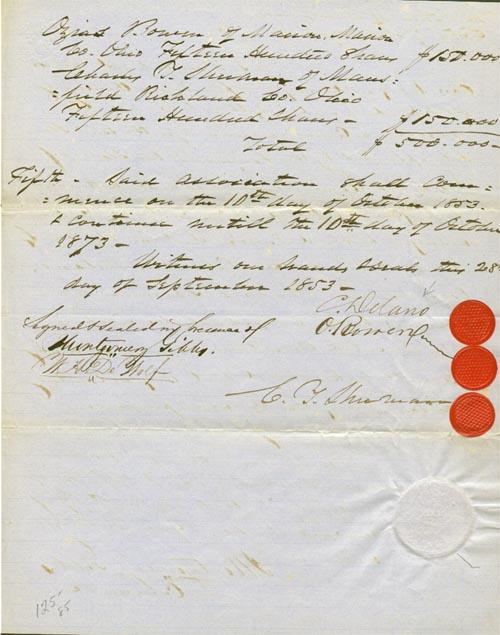 Ozias Bowen of Marion, Marion
Co. Ohio Fifteen Hundred Shares $150.000
Charles T. Sherman of Mans=
=field Richland Co. Ohio
Fifteen Hundred Shares - $150.000
Total $500.000-
Fifth - Said association shall com=
=mence on the 10th day of October 1853.
& continue untill the 10th day of October
1873-
Witness our hands & seals this 28th
day of September 1853-
C. Delano
O. Bowen
Signed & sealed in presence of
Montgomery Gibbs.
W. De Wolf
C. T. Sherman
125